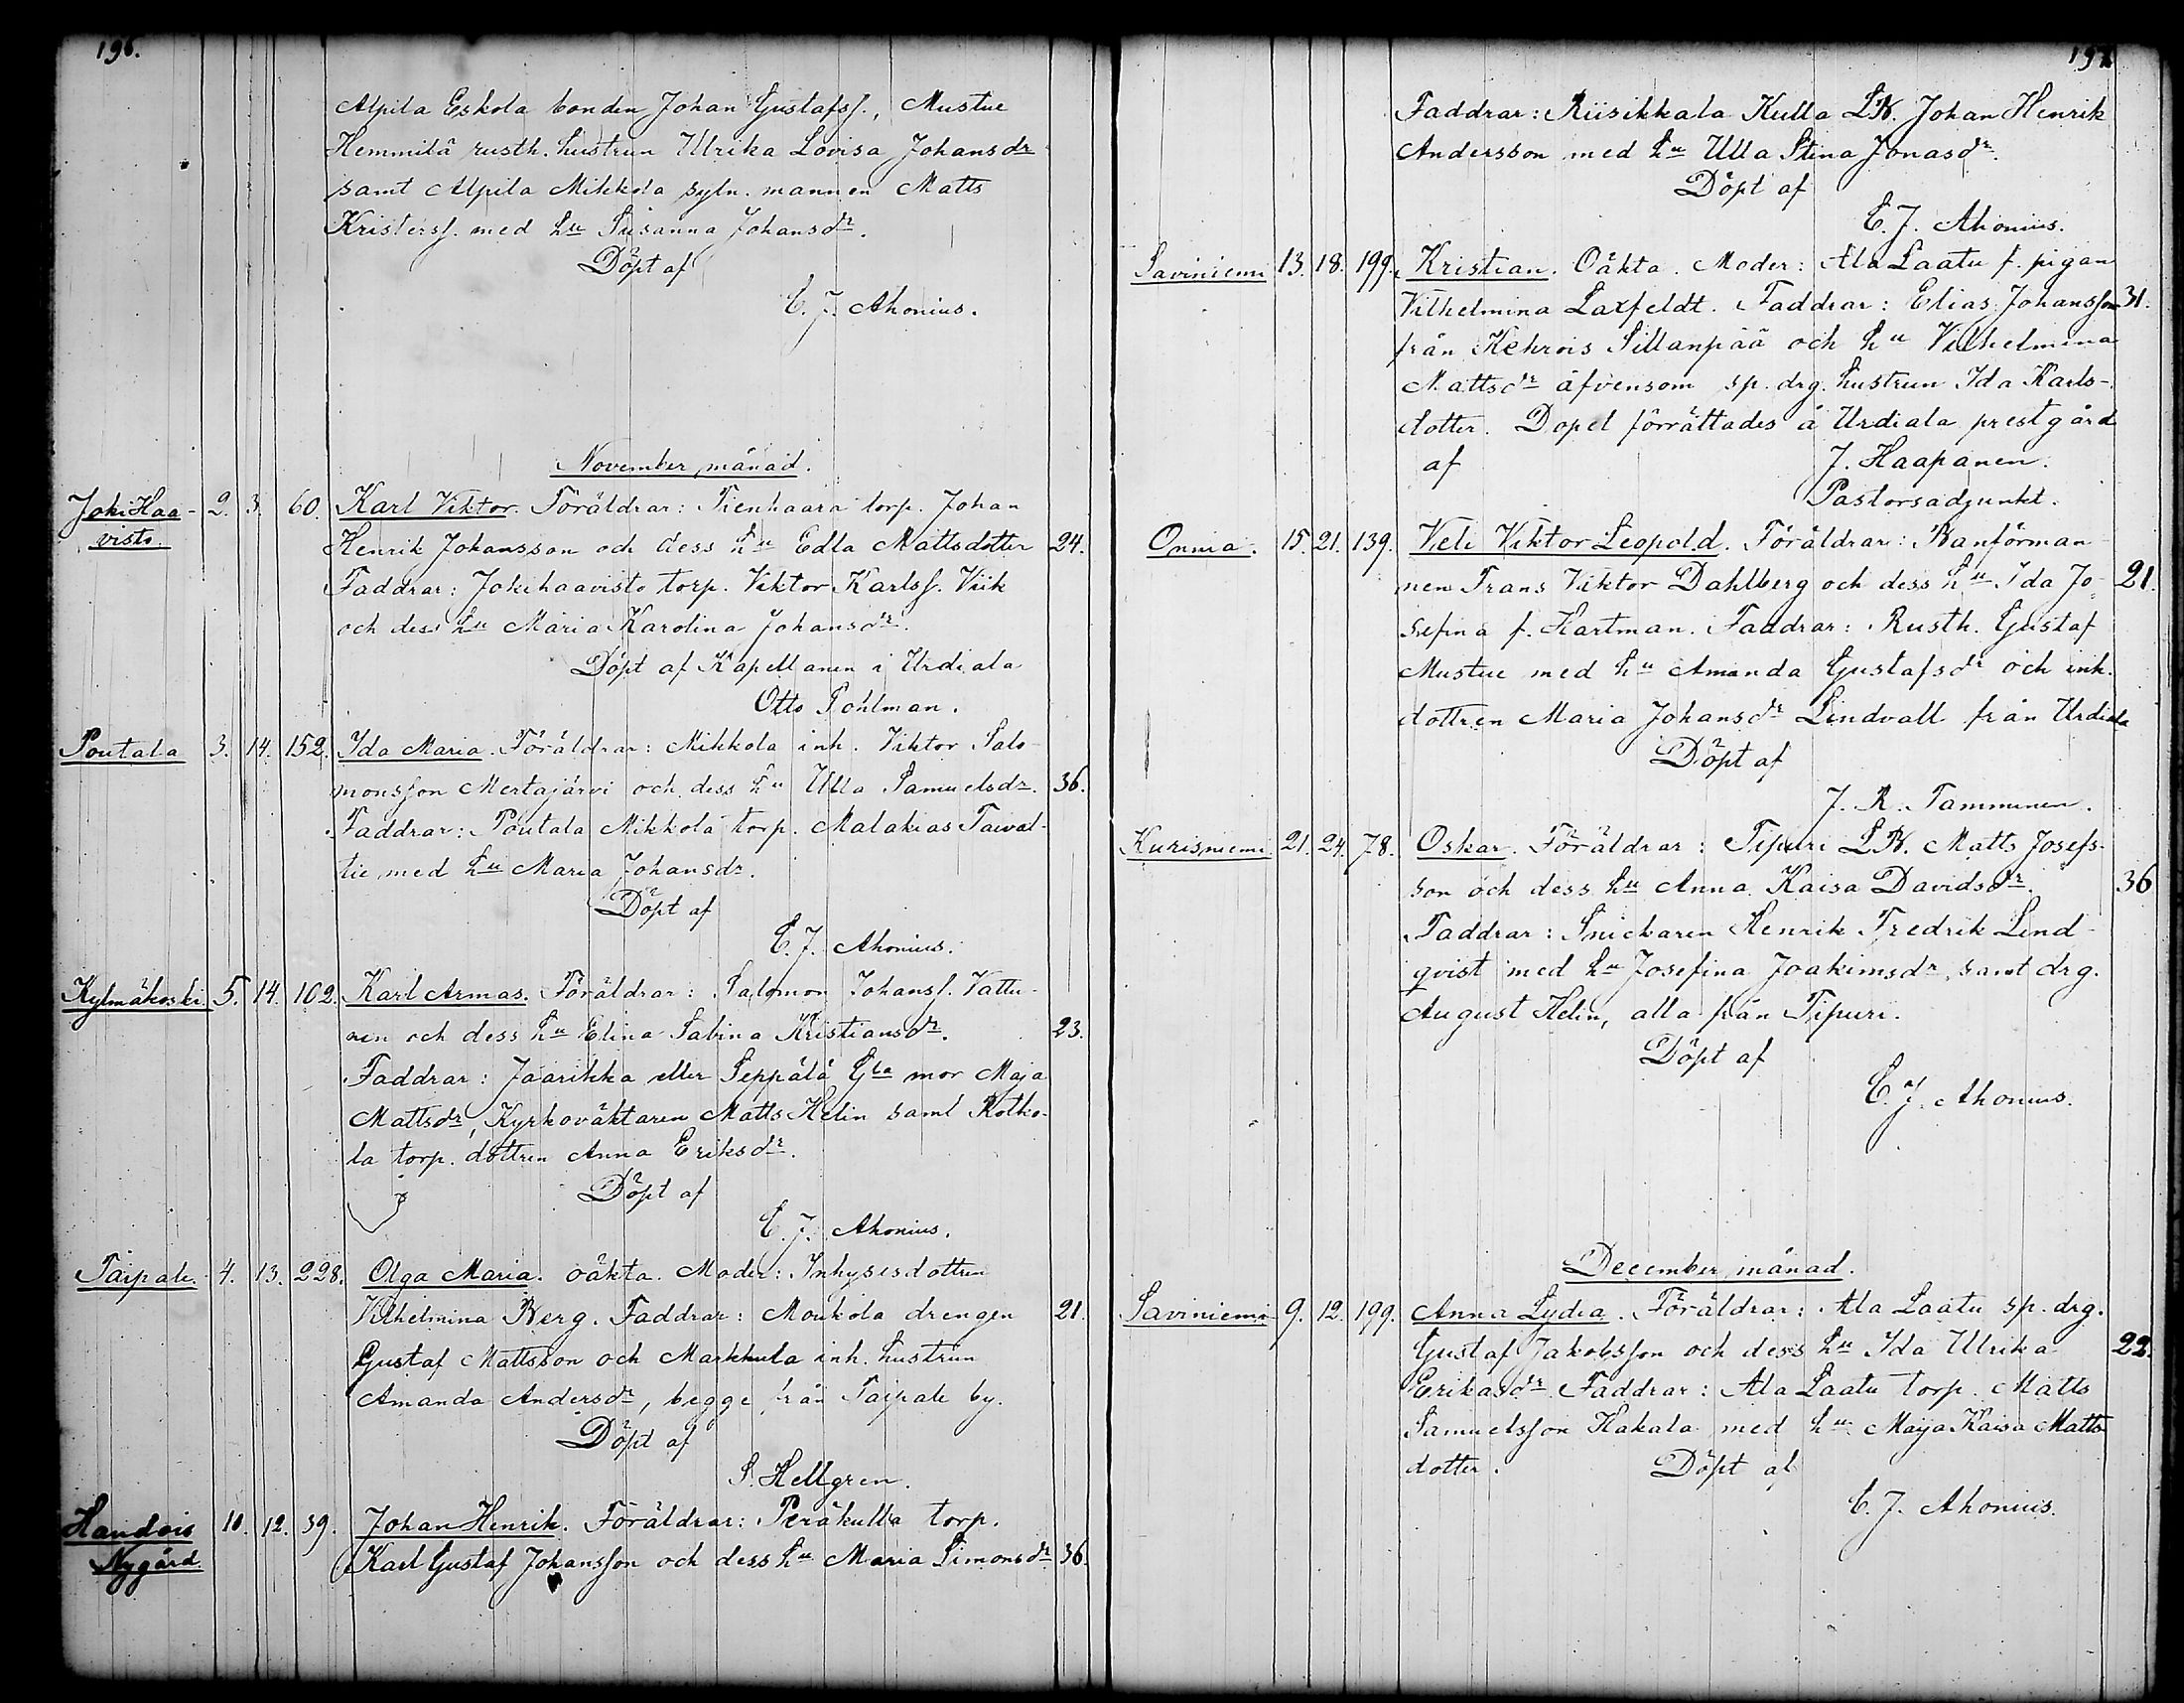 196.
Alpila Eskola bonden Johan Gustafsf., Mustue
Hemmilä rusth. hustrun Ulrika Lovisa Johansdr
samt Alpila Mikkola sytn. mannen Matts
Kristersf. med hu Susanna Johansdr.
Döpt af
E. J. Ahonius.
November månad.
Joki Haa- 2. 3. 60. Karl Viktor. Föräldrar: Tienhaara torp. Johan
visto. Henrik Johansson och dess hu Edla Mattsdotter 24.
Faddrar: Jokihaavisto torp. Viktor Karlsf. Viik
och dess hu Maria Karolina Johansdr.
Döpt af Kapellanen i Urdiala
Otto Pohlman.
Poutala 3. 14. 152. Ida Maria. Föräldrar: Mikkola inh. Viktor Salo-
monsson Mertajärvi och dess hu Ulla Samuelsdr. 36.
Faddrar: Poutala Mikkola torp. Malakias Taival-
tie med hu Maria Johansdr.
Döpt af
E. J. Ahonius.
Kylmäkoski 5. 14. 102. Karl Armas. Föräldrar: Salomon Johansf. Vattu-
nen och dess hu Elina Sabina Kristiansdr. 23.
Faddrar: Jaarikka eller Seppälä Gla mor Maja
Mattsdr, Kyrkoväktaren Matts Helin samt Rotko-
la torp. dottren Anna Eriksdr.
Döpt af
E. J. Ahonius.
Taipale. 4. 13. 228. Olga Maria. oäkta. Moder: Inhysesdottren
Vilhelmina Berg. Faddrar: Moukola drengen 21.
Gustaf Mattsson och Markkula inh. hustrun
Amanda Andersdr, begge från Taipale by.
Döpt af
S. Hellgren.
Handois 10. 12. 39. Johan Henrik. Föräldrar: Peräkulla torp.
Nygård. Karl Gustaf Johansson och dess hu Maria Simonsdr 36.
197
Faddrar: Riisikkala Kulla LB. Johan Henrik
Andersson med hu Ulla Stina Jonasdr.
Döpt af
E. J. Ahonius.
Saviniemi 13. 18. 199. Kristian. Oäkta. Moder: Ala Laatu f. pigan
Vilhelmina Laxfeldt. Faddrar: Elias Johansson 31.
från Kehrois Sillanpää och hu Vilhelmina
Mattsdr äfvensom sp. drg. hustrun Ida Karls-
dotter. Dopet förrättades å Urdiala prestgård
af J. Haapanen.
Pastorsadjunkt.
Onnia. 15. 21. 139. Veli Viktor Leopold. Föräldrar: Banförman-
nen Frans Viktor Dahlberg och dess hu Ida Jo- 21.
sefina f. Hartman. Faddrar: Rusth. Gustaf
Mustue med hu Amanda Gustafsdr och inh.
dottren Maria Johansdr Lindvall från Urdiala
Döpt af
J. R. Tamminen.
Kurisniemi. 21. 24. 78. Oskar. Föräldrar: Tipuri LB. Matts Josefs-
son och dess hu Anna Kaisa Davidsdr. 36
Faddrar: Snickaren Henrik Fredrik Lind-
qvist med hu Josefina Joakimsdr, samt drg.
August Helin, alla från Tipuri.
Döpt af
E. J. Ahonius.
December månad.
Saviniemi 9. 12. 199. Anna Lydia. Föräldrar: Ala Laatu sp. drg.
Gustaf Jakobsson och dess hu Ida Ulrika 22.
Eriksdr. Faddrar: Ala Laatu torp. Matts
Samuelsson Hakala med hu Maija Kaisa Matts
dotter. Döpt af
E. J. Ahonius.